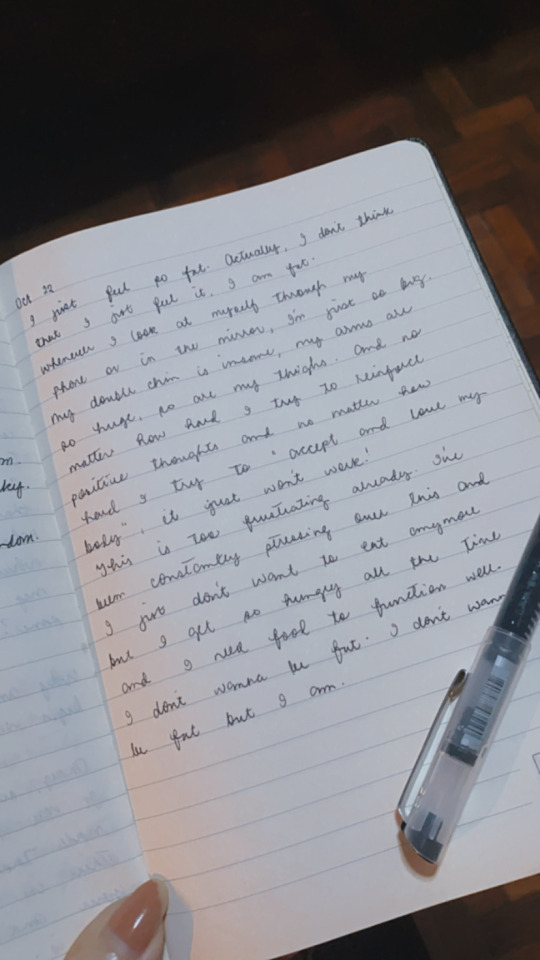 Oct 22
I just feel so fat. Actually, I don't think
that I just feel it, I am fat.
whenever I look at myself through my
phone or in the mirror, I'm just so big.
my double chin is insane, my arms are
so huge, so are my thighs. And no
matter how hard I try to reinforce
positive thoughts and no matter how
hard I try to "accept and love my
body", it just won't work!
This is too frustrating already. I've
been constantly stressing over this and
I just don't want to eat anymore
but I get so hungry all the time
and I need food to function well.
I don't wanna be fat. I don't wanna
be fat but I am.
m.
ky.
ndom.